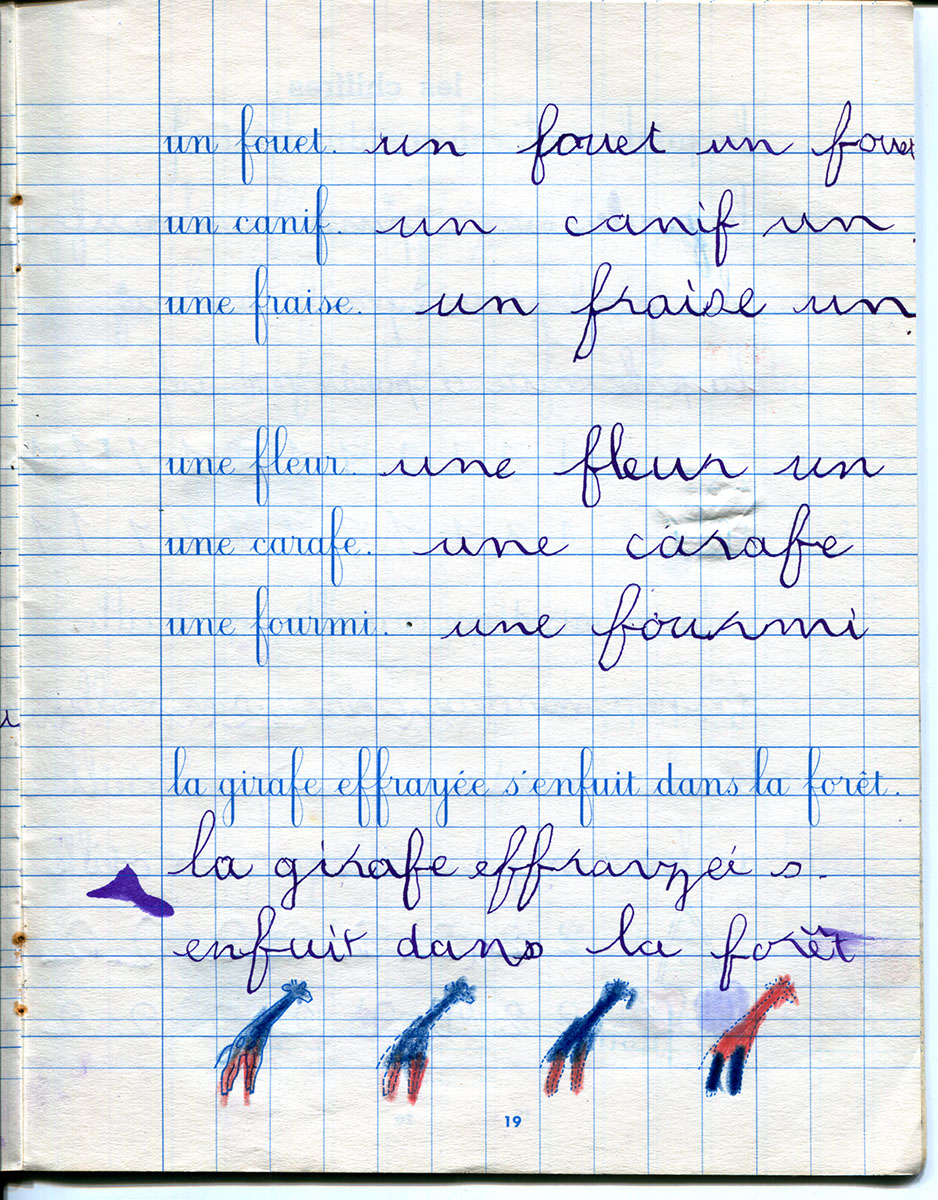 un fouet. un fouet un fouet
un canif. un canif un
une fraise. un fraise un
une fleur. une fleur un
une carafe. une carafe
une fourmi. une fourmi
la girafe effrayée s'enfuit dans la forêt.
la girafe effrayzéi s.
enfuit dans la forêt
19